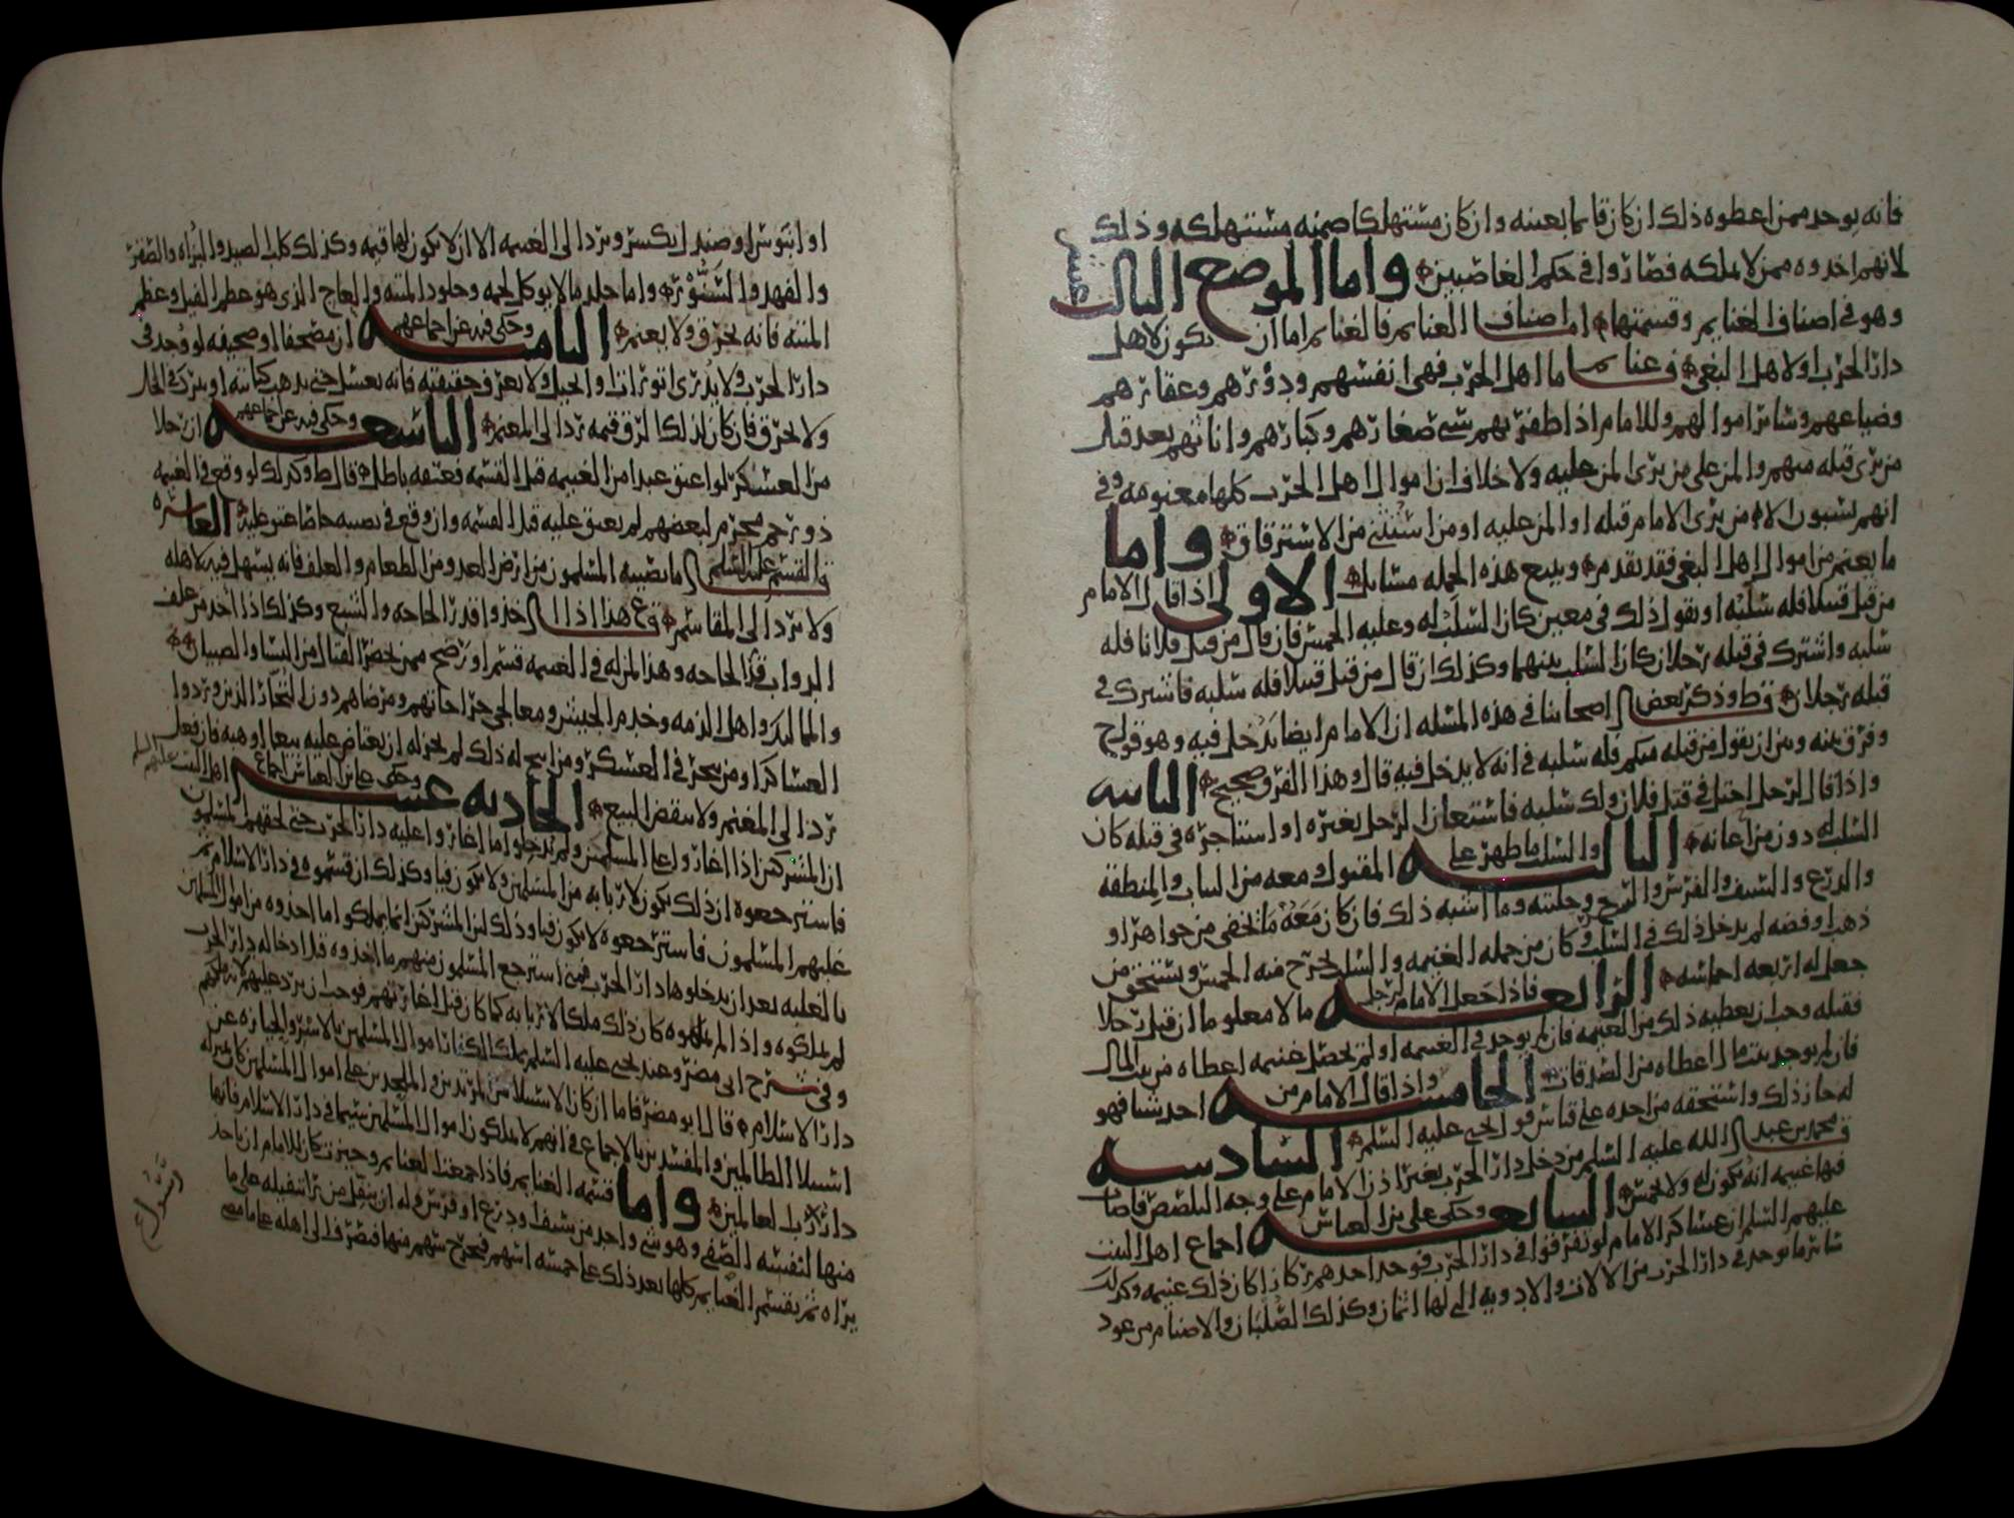 فانه يوخد ممن اعطوه ذلك ان كان قائما بعينه وان كان مستهلكا ضمنه مستهلكه وذلك
لانهم اخذوه ممن لا يملكه فصاروا في حكم الغاصبين واما الموضع الثالث
وهو في اصناف الغنايم وقسمتها اما اصناف الغنايم فالغنايم اما ان تكون لاهل
دار الحرب او لاهل البغي فغنايم اهل الحرب فهي انفسهم ودورهم وعقارهم
وضياعهم وسائر اموالهم وللامام اذا ظفر بهم سبي صغارهم وكبارهم واناثهم بعد قتل
من يرى قتله منهم والمن على من يرى المن عليه ولا خلاف ان اموال اهل الحرب كلها مغنومة وفي
انهم يسبون الا من يرى الامام قتله او المن عليه او من استثني من الاسترقاق واما
ما يغنم من اموال اهل البغي فقد تقدم ويتبع هذه الجمله مسايل الاولى اذا قال الامام
من قتل قتيلا فله سلبه او يقول ذلك في معين كان السلب له وعليه الخمس فان قال من قتل فلانا فله
سلبه واشترك في قتله رجلان كان السلب بينهما وكذلك ان قال من قتل قتيلا فله سلبه فاشترك في
قتله رجلان قال ط وذكر بعض اصحابنا في هذه المسله ان الامام ايضا يدخل فيه وهو قول ح
وفرق بينه وبين ان يقول من قتله منكم فله سلبه في انه لا يدخل فيه قال وهذا الفرق صحيح الثانيه
واذا قال لرجل احتل في قتل فلان ولك سلبه فاستعان الرجل بغيره او استاجره في قتله كان
السلب له دون من اعانه الثالثه والسلب ما ظهر على المقتول ومعه من الثياب والمنطقة
والدرع والسيف والفرس والسرج وحليته وما اشبه ذلك فان كان معه ما يخفى من جواهر او
ذهب او فضه لم يدخل ذلك في السلب وكان من جمله الغنيمه والسلب يخرج منه الخمس ويستحق من
جعل له اربعه اخماسه الرابعه فاذا جعل الامام لرجل مالا معلوما ان قتل رجلا
فقتله وجب ان يعطيه ذلك من الغنيمه فان لم يوجد في الغنيمه او لم تحصل غنيمه اعطاه من بيت المال
فان لم يوجد بيت مال اعطاه من الصدقات الخامسه واذا قال الامام من اخذ شيا فهو
له جاز ذلك واستحقه من اخذه على قياس قول يحيى عليه السلم السادسه
محمد بن عبد الله عليه السلم من دخل دار الحرب بغير اذن الامام على وجه التلصص فاصاب
فيها غنيمه انه يكون له ولا خمس السابعه وحكى علي بن العباس اجماع اهل البيت
عليهم السلم ان عساكر الامام لو تفرقوا في دار الحرب فوجد احدهم ركازا كان ذلك غنيمه وكذلك
سائر ما يوجد في دار الحرب من الالات والادويه التي لها اثمان وكذلك الصلبان والاصنام من عود
او ابنوس او صندل يكسر ويرد الى الغنيمه الا ان لا يكون لها قيمه وكذلك كلاب الصيد والبزاه والصقر
والفهد والسنور واما جلد ما لا يوكل لحمه وجلود الميته والعاج الذي هو عظم الفيل وعظم
الميته فانه يحرق ولا يغنم الثامنه وحكى فيه عن اجماعهم ان مصحفا او صحيفه لو وجد في
دار الحرب ولا يدرى اتوراة او انجيل ولا يعرف حقيقته فانه يغسل حتى يذهب كتابته او يترك في الخل
ولا يحرق فان كان لذلك الرق قيمه رد الى المغنم التاسعه وحكى فيه عن اجماعهم ان رجلا
من العسكر لو اعتق عبدا من الغنيمه قبل القسمه فعتقه باطل قال ط وكذلك لو وقع في الغنيمه
ذو رحم محرم لبعضهم لم يعتق عليه قبل القسمه وان وقع في نصيبه خاصا عتق عليه العاشره
قال القسم عليه السلم ما يصيبه المسلمون من ارض العدو من الطعام والعلف فانه يستهل فيه لاهله
ولا يرد الى المقاسم ع هذا اذا اخذوا قدر الحاجه والشبع وكذلك اذا اخذ من علف
الدواب قدر الحاجه وهذا المن له في الغنيمه قسم او رضح ممن يحضر القتال من النسا والصبيان
والمماليك واهل الذمه وخدم الجيش ومعالجي جراحاتهم ومرضاهم دون التجار الذين وردوا
العساكر او من يتجر في العسكر ومن ابيح له ذلك لم يجز له ان يعتاض عليه بيعا او هبه فان فعل
رد الى المغنم ولا ينقض البيع الحاديه عشر وحكى علي بن العباس اجماع اهل البيت عليهم السلم
ان المشركين اذا اغاروا على المسلمين ولم يدخلوا ما اغاروا عليه دار الحرب حتى لحقهم المسلمون
فاسترجعوه ان ذلك يكون لاربابه من المسلمين ولا يكون فيا وكذلك ان قسموه في دار الاسلام ثم
غلبهم المسلمون فاسترجعوه لا يكون فيا وذلك لان المشركين انما يملكوا ما اخذوه من اموال المسلمين
بالغلبه بعد ان يدخلوها دار الحرب فمتى استرجع المسلمون منهم ما اخذوه قبل ادخاله دار الحرب
لم يملكوه واذا لم يملكوه كان ذلك ملكا لاربابه كما كان قبل اغارتهم فوجب ان يرد عليهم لانه ملكهم
وفي شرح ابي مضر وعند يحيى عليه السلم يملك الكفار اموال المسلمين بالاسر والحيازه عن
دار الاسلام قال ابو مضر فاما ان كان الاستيلا من المرتدين والملحدين على اموال المسلمين كان بمنزله
استيلا الظالمين والمفسدين بالاجماع في انهم لا يملكون اموال المسلمين سيما في دار الاسلام فانها
دار رب العالمين واما قسمه الغنايم فاذا جمعت الغنايم وحيزت كان للامام ان ياخذ
منها لنفسه الصفي وهو شي واحد من سيف او درع او فرس وله ان ينفل من يرا تنفيله على ما
يراه ثم يقسم الغنايم كلها بعد ذلك على خمسه اسهم فيخرج سهم منها فيصرف الى اهله على ما مضى